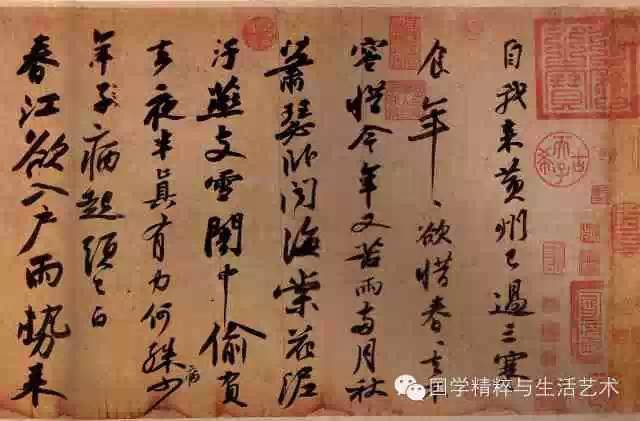 自我来黄州已過三寒
食年〻欲惜春〻去不
容惜今年又苦雨兩月秋
蕭瑟卧聞海棠花泥
汙燕支雪闇中偷負
去夜半真有力何殊少病
年子病起頭已白
春江欲入户雨勢来
古希天子
国学精粹与生活艺术